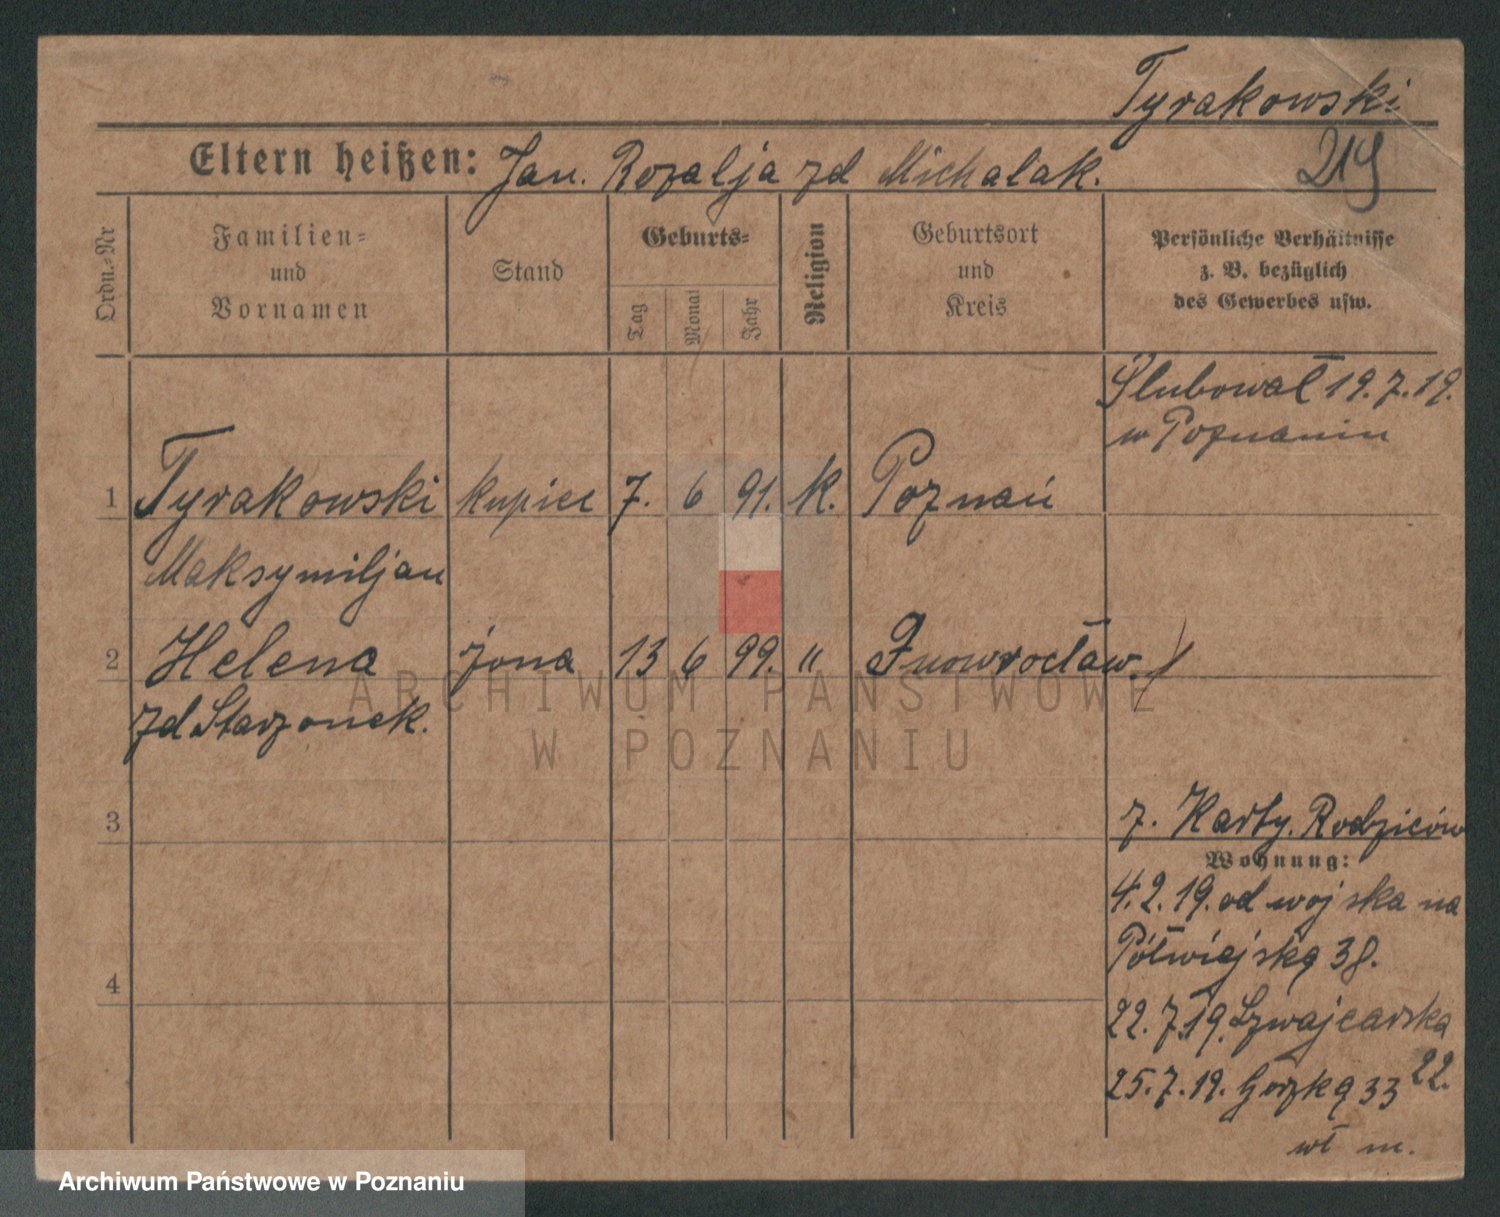 Tyrakowski
Eltern heißen: Jan. Rozalja zd Michalak.
219
Ordn.-Nr
Familien-
und
Vornamen
Stand
Geburts-
Tag
Monat
Jahr
Religion
Geburtsort
und
Kreis
Persönliche Verhältnisse
z. B. bezüglich
des Gewerbes usw.
Ślubował 19.7.19.
w Poznaniu
1 Tyrakowski kupiec 7. 6 91. k. Poznań
Maksymiljan
2 Helena żona 13 6 99. " Inowrocław.
zd Starzonek.
ARCHIWUM PAŃSTWOWE
W POZNANIU
3
z. Karty. Rodziców
Wohnung:
4.2.19. od wojska na
Półwiejską 38.
4
22.7.19. Szwajcarska
22.
25.7.19. Górką 33
wł m.
Archiwum Państwowe w Poznaniu